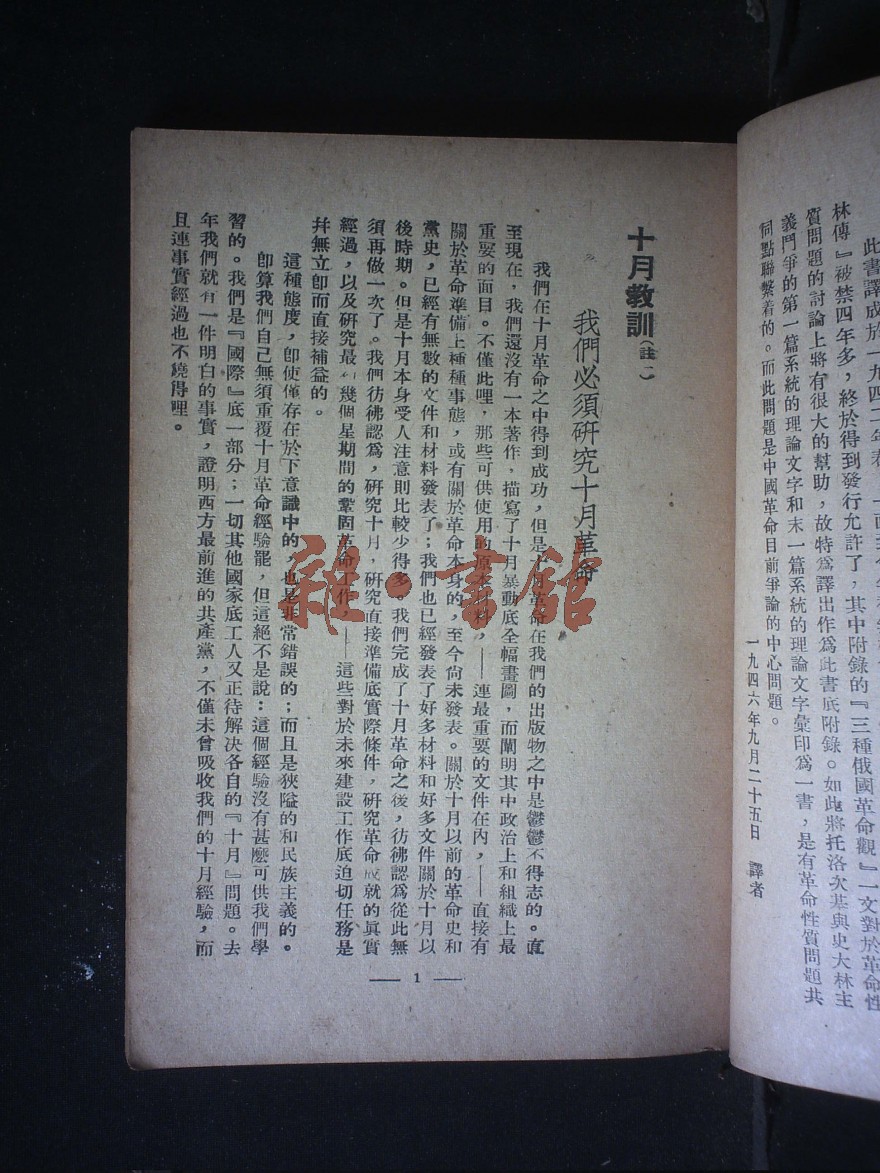 此書譯成於一九四二年春
林傳』被禁四年多，終於得到發行允許了，其中附錄的『三種俄國革命觀』一文對於革命性
質問題的討論上將有很大的幫助，故特爲譯出作爲此書底附錄。如此將托洛次基與史大林主
義鬥爭的第一篇系統的理論文字和末一篇系統的理論文字彙印爲一書，是有革命性質問題共
同點聯繫着的。而此問題是中國革命目前爭論的中心問題。
一九四六年九月二十五日　譯者
十月教訓（註一）
我們必須研究十月革命
我們在十月革命之中得到成功，但是十月革命在我們的出版物之中是鬱鬱不得志的。直
至現在，我們還沒有一本著作，描寫了十月暴動底全幅畫圖，而闡明其中政治上和組織上最
重要的面目。不僅此哩，那些可供使用的原本材料，——連最重要的文件在內，——直接有
關於革命準備上種種事態，或有關於革命本身的，至今尙未發表。關於十月以前的革命史和
黨史，已經有無數的文件和材料發表了；我們也已經發表了好多材料和好多文件關於十月以
後時期。但是十月本身受人注意則比較少得多。我們完成了十月革命之後，彷彿認爲從此無
須再做一次了。我們彷彿認爲，研究十月，研究直接準備底實際條件，研究革命成就的眞實
經過，以及研究最初幾個星期間的鞏固革命工作，——這些對於未來建設工作底迫切任務是
幷無立卽而直接補益的。
這種態度，卽使僅存在於下意識中的，也是非常錯誤的；而且是狹隘的和民族主義的。
卽算我們自己無須重覆十月革命經驗罷，但這絕不是說：這個經驗沒有甚麽可供我們學
習的。我們是『國際』底一部分；一切其他國家底工人又正待解決各自的『十月』問題。去
年我們就有一件明白的事實，證明西方最前進的共產黨，不僅未曾吸收我們的十月經驗，而
且連事實經過也不曉得哩。
— 1 —
雜·書館